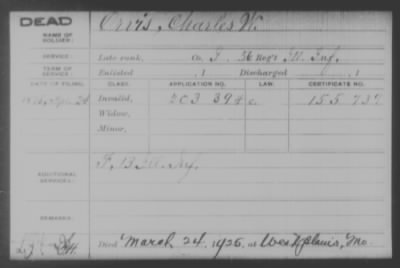 DEAD
NAME OF SOLDIER: Orvis, Charles W.
SERVICE: Late rank, Co. I, 36 Reg't Ill. Inf.
TERM OF SERVICE: Enlisted , 1 Discharged , 1
DATE OF FILING. CLASS. APPLICATION NO. LAW. CERTIFICATE NO.
Invalid, 203 394 155 737
Widow,
Minor,
ADDITIONAL SERVICES: F, 13 Ill. Inf.
REMARKS:
Died March 24, 1926, at West Plains, Mo.